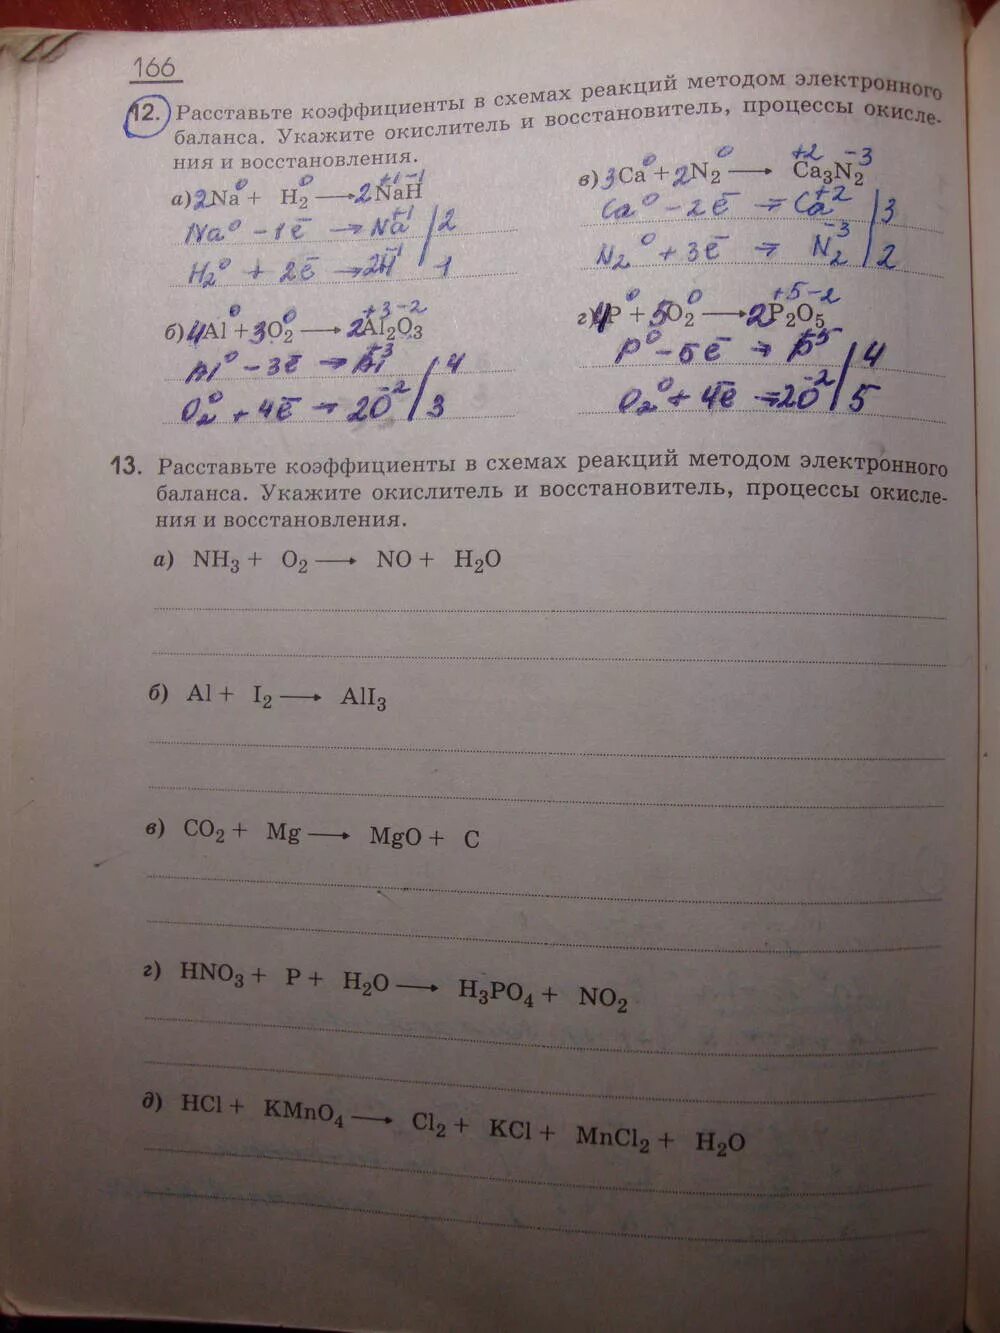 166
12. Расставьте коэффициенты в схемах реакций методом электронного
баланса. Укажите окислитель и восстановитель, процессы окисле-
ния и восстановления.
а) 2Na⁰ + H₂⁰ → 2Na⁺¹H⁻¹
Na⁰ – 1ē → Na⁺¹ / 2
H₂⁰ + 2ē → 2H⁻¹ 1
б) 4Al⁰ + 3O₂⁰ → 2Al₂⁺³O₃⁻²
Al⁰ – 3ē → Al⁺³ / 4
O₂⁰ + 4ē → 2O⁻² / 3
в) 3Ca⁰ + 2N₂⁰ → Ca₃⁺²N₂⁻³
Ca⁰ – 2ē → Ca⁺² / 3
N₂⁰ + 3ē → N₂⁻³ / 2
г) 4P⁰ + 5O₂⁰ → 2P₂⁺⁵O₅⁻²
P⁰ – 5ē → P⁺⁵ / 4
O₂⁰ + 4ē → 2O⁻² / 5
13. Расставьте коэффициенты в схемах реакций методом электронного
баланса. Укажите окислитель и восстановитель, процессы окисле-
ния и восстановления.
а) NH₃ + O₂ → NO + H₂O
б) Al + I₂ → AlI₃
в) CO₂ + Mg → MgO + C
г) HNO₃ + P + H₂O → H₃PO₄ + NO₂
д) HCl + KMnO₄ → Cl₂ + KCl + MnCl₂ + H₂O